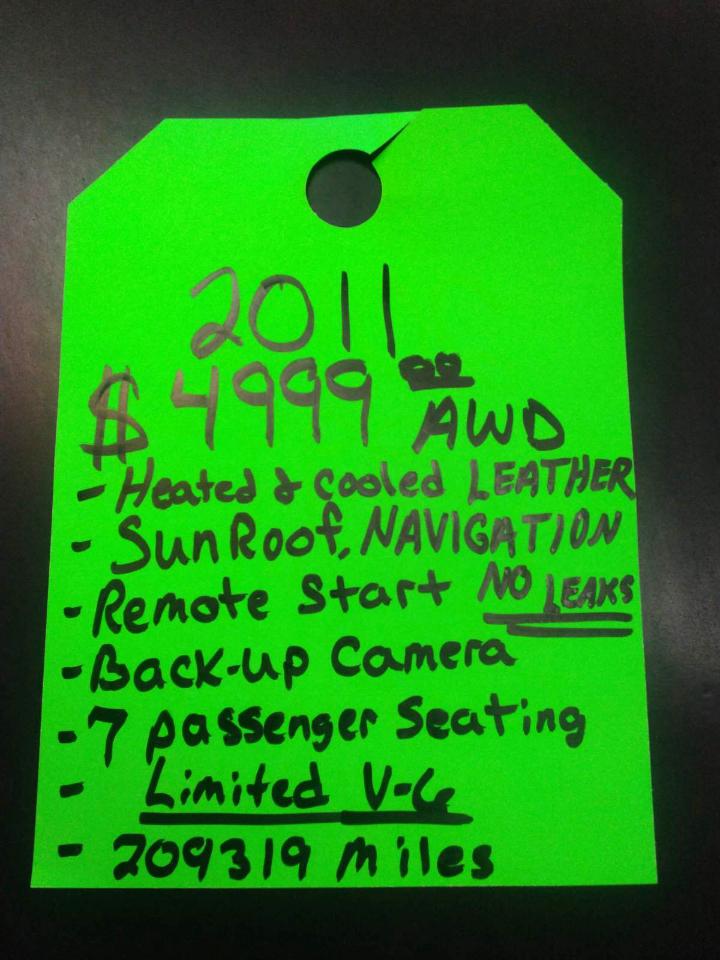 2011
$4999 00 AWD
- Heated & cooled LEATHER
- SunRoof, NAVIGATION
- Remote Start NO LEAKS
- Back-up Camera
- 7 passenger Seating
- Limited V-6
- 209319 miles